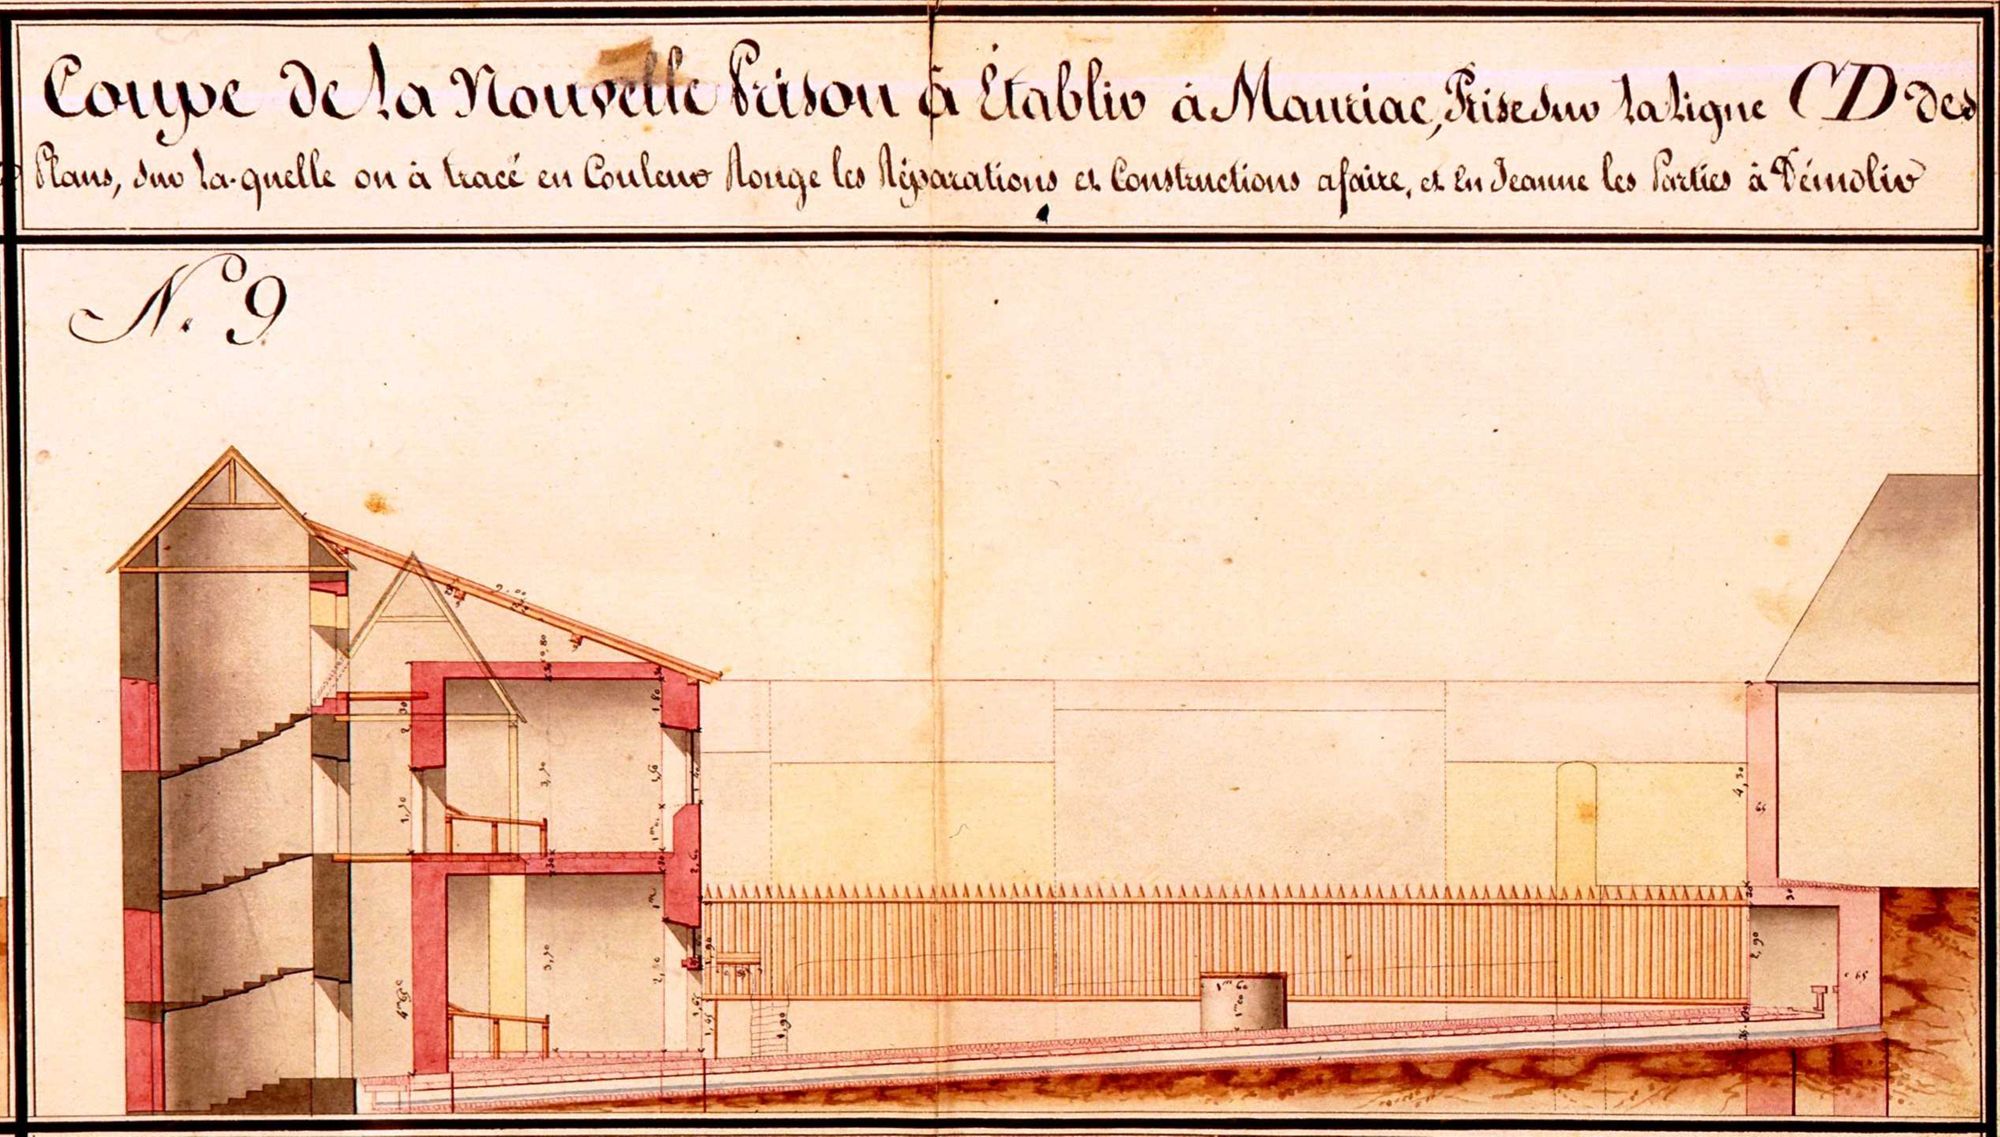 Coupe de la Nouvelle Prison à Établir à Mauriac, Prise sur la Ligne CD des
Plans, sur la-quelle on à tracé en Couleur Rouge les Réparations et Constructions afaire, et En Jeaune les Parties à Démolir
N.o 9
0,80
1,80
2,30
3,30
1,50
1,30
4,30
65
2,60
30
1m
1,90
2,90
3,30
2,80
1m 60
1m 00
65
1,45
1,90